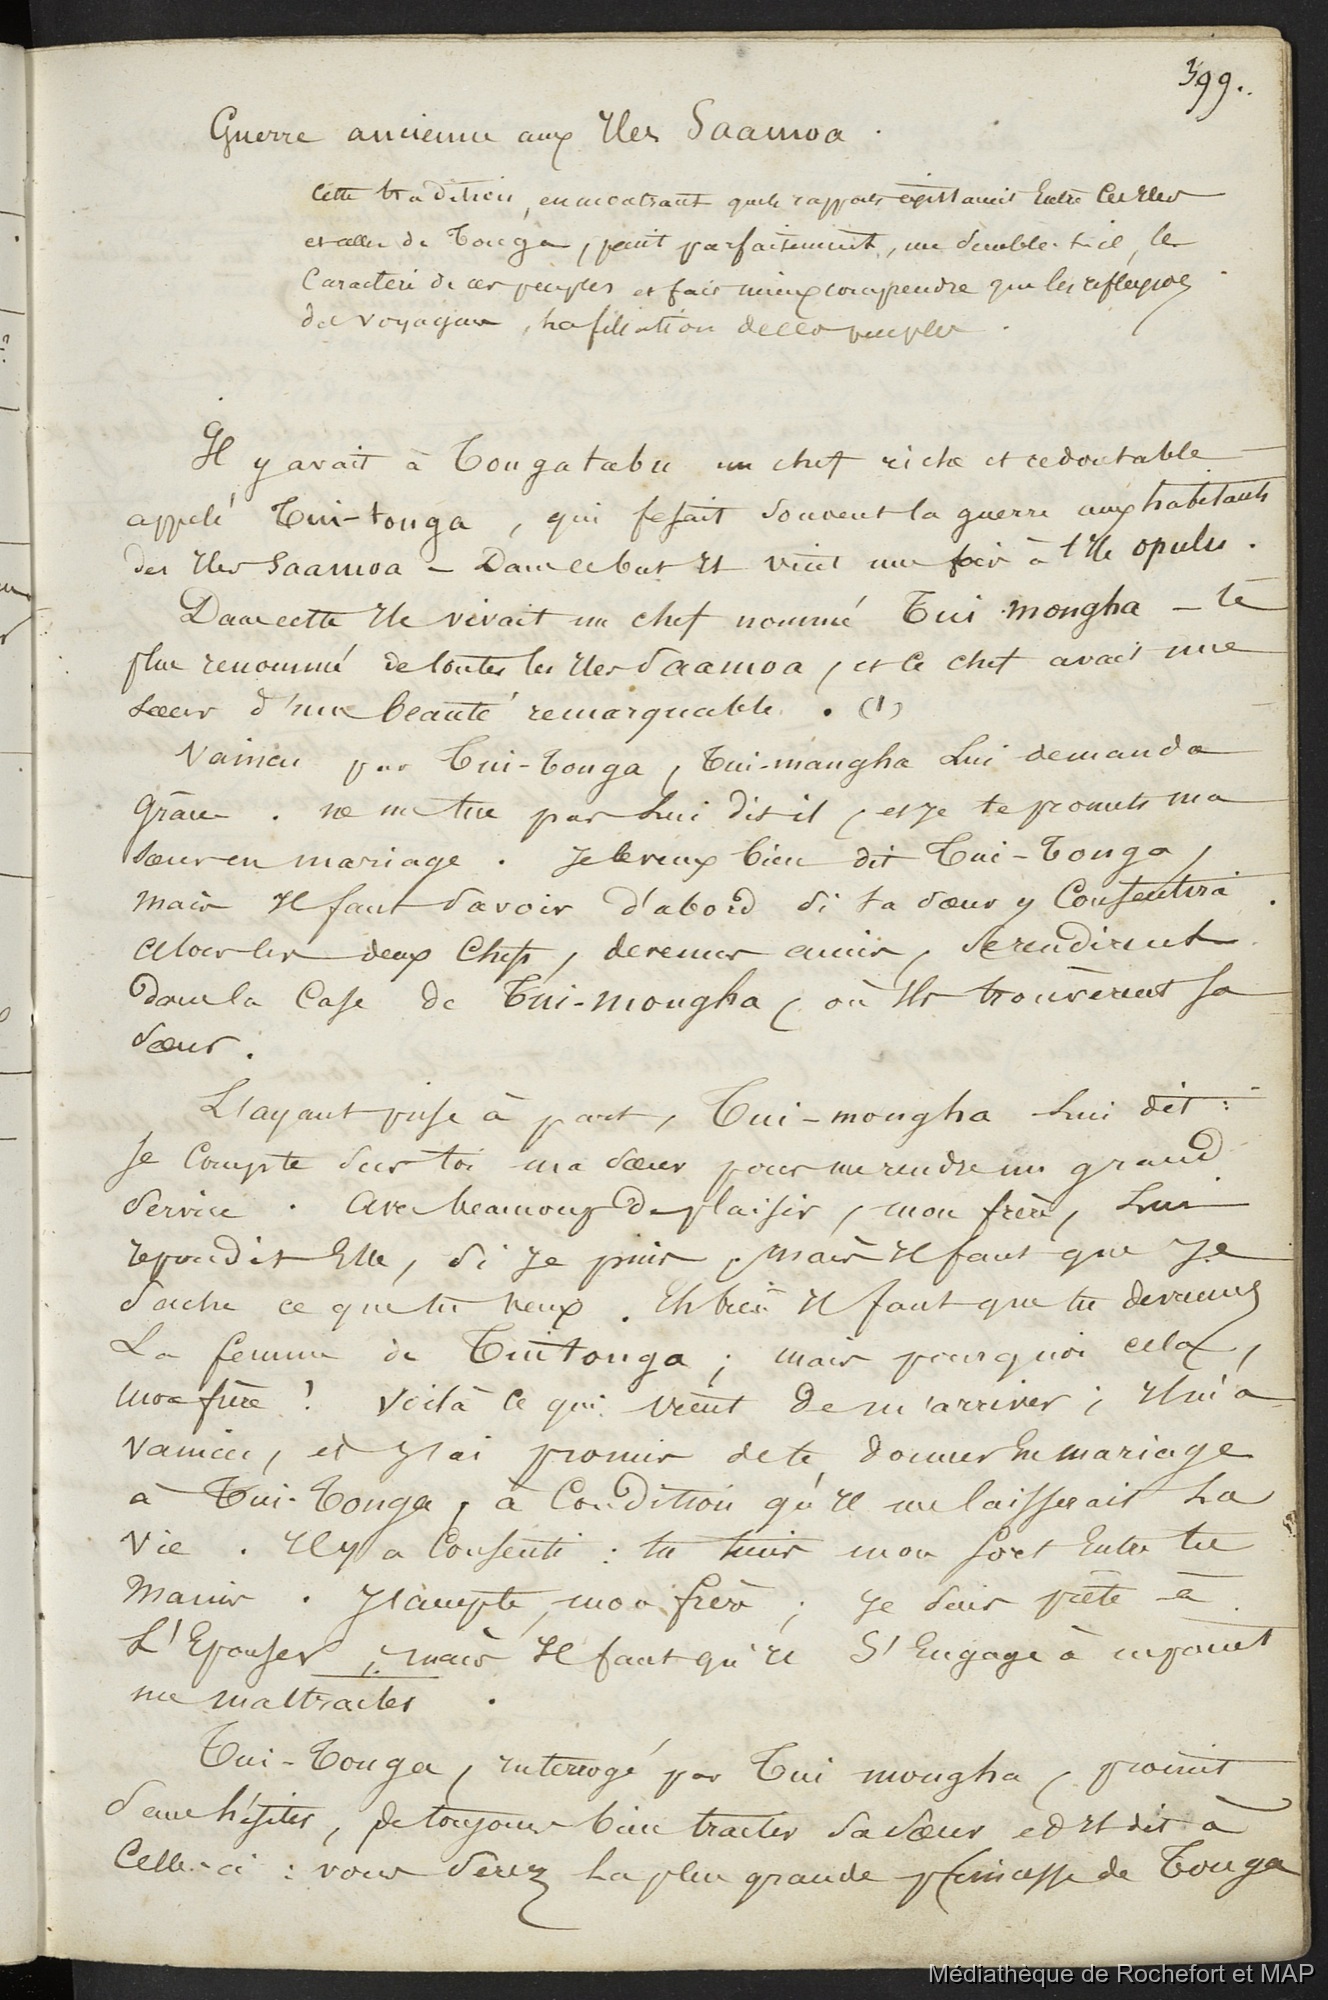 399.
Guerre ancienne aux Iles Saamoa.
Cette tradition, en montrant quels rapports existaient Entre Ces Iles
et celles de Tonga, peint parfaitement, me semble-t-il, le
Caractère de ces peuples et fait mieux comprendre que les réflexions
des Voyageurs, la filiation de ces peuples.
Il y avait à Tongatabu un chef riche et redoutable
appelé Tui-tonga, qui fesait souvent la guerre aux habitants
des Iles Saamoa - Dans ce but Il vint une fois à l'Ile opulu.
Dans cette Ile vivait un chef nommé Tui mongha - le
plus renommé de toutes les Iles Saamoa, et ce chef avait une
soeur d'une beauté remarquable. (1)
Vaincu par Tui-Tonga, Tui-mangha Lui demanda
Grâce. ne me tue pas Lui dit il, et je te promets ma
soeur en mariage. Je le veux bien dit Tui-Tonga,
mais Il faut savoir d'abord si ta soeur y Consentira.
Alors les deux Chefs, devenus amis, se rendirent
dans la Case de Tui-mongha, où Ils trouvèrent sa
soeur.
L'ayant prise à part, Tui-mongha Lui dit:
Je Compte sur toi ma soeur pour me rendre un grand
service. Avec beaucoup de plaisir, mon frère, Lui
répondit Elle, si Je puis, mais Il faut que Je
sache ce que tu veux. Eh bien Il faut que tu deviennes
La femme de Tuitonga; mais pourquoi cela,
mon frère? Voilà ce qui vient de m'arriver; Il m'a
vaincu, et J'ai promis de te donner En mariage
à Tui-Tonga, à Condition qu'Il me laisserait La
Vie. Il y a Consenti: tu tiens mon sort Entre tes
mains. J'accepte, mon frère; je suis prête à
L'Epouser, mais Il faut qu'Il S'Engage à ne point
me maltraiter.
Tui-Tonga, interrogé par Tui mongha, promit
sans hésiter, de toujours bien traiter sa soeur et Il dit à
Celle-ci: vous serez La plus grande princesse de Tonga
Médiathèque de Rochefort et MAP